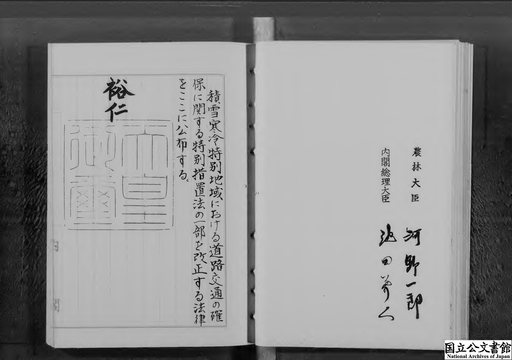 積雪寒冷特別地域における道路交通の確
保に関する特別措置法の一部を改正する法律
をここに公布する。
裕仁
天皇
御璽
農林大臣
河野一郎
内閣総理大臣
池田勇人
国立公文書館
National Archives of Japan